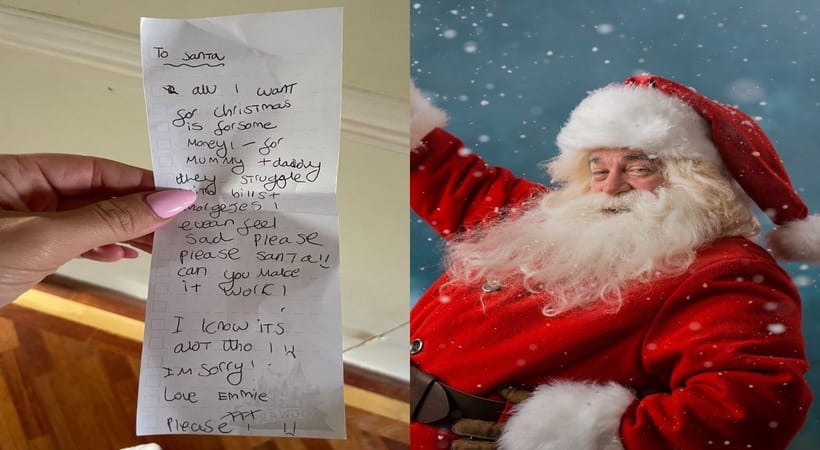 To Santa
all I want
for christmas
is for some
money! - for
mummy + daddy
they struggle
with bills +
morgeses I
even feel
sad please
please santa!!
can you make
it work!
I know its
alot tho!
I'm sorry!
Love Emmie
Please!